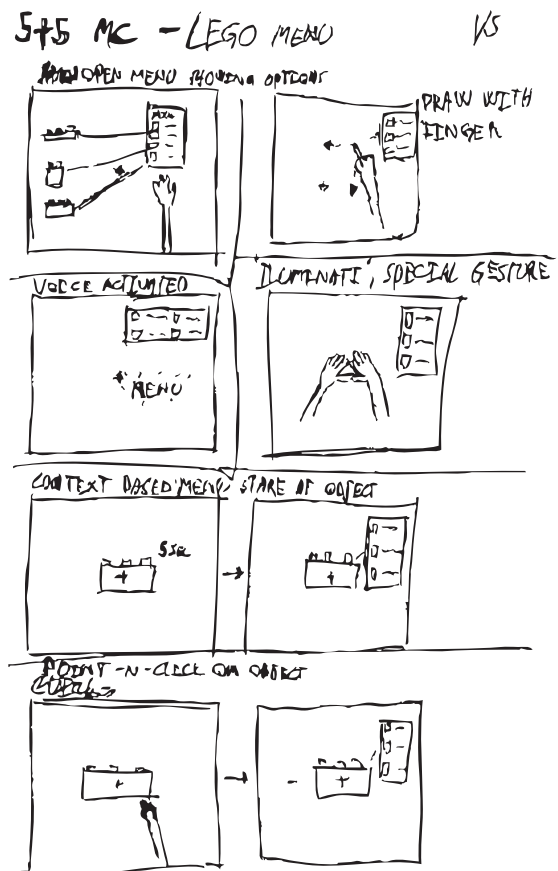 5+5 MC - LEGO MENU
V5
OPEN MENU SHOWING OPTIONS
MENU
DRAW WITH
FINGER
VOICE ACTIVATED
MENU
ILUMINATI, SPECIAL GESTURE
CONTEXT BASED MENU, STARE AT OBJECT
5 SEC
POINT-N-CLICK ON OBJECT